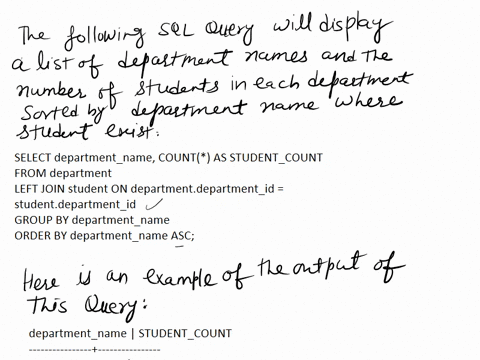 The following SQL Query will display
a list of department names and the
number of students in each department
Sorted by department name where
student exist:
SELECT department_name, COUNT(*) AS STUDENT_COUNT
FROM department
LEFT JOIN student ON department.department_id =
student.department_id
GROUP BY department_name
ORDER BY department_name ASC;
Here is an example of the output of
This Query:
department_name | STUDENT_COUNT
----------------+----------------